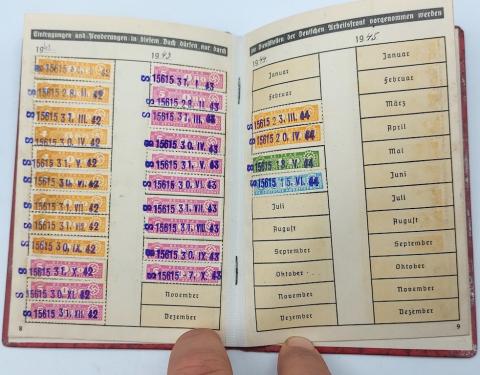 Eintragungen und Aenderungen in diesem Buch dürfen nur durch
die Dienststellen der Deutschen Arbeitsfront vorgenommen werden
1942
15615 28. II. 42
15615 31. III. 42
15615 30. IV. 42
15615 31. V. 42
15615 30. VI. 42
15615 31. VII. 42
15615 30. IX. 42
15615 31. X. 42
15615 30. XI. 42
15615 31. XII. 42
8
1943
15615 31. I. 43
15615 28. II. 43
15615 31. III. 43
15615 30. IV. 43
15615 31. V. 43
15615 30. VI. 43
15615 31. VII. 43
15615 30. IX. 43
15615 -7. X. 43
November
Dezember
1944
Januar
Februar
15615 23. III. 44
15615 20. IV. 44
15615 15. V. 44
15615 15. VI. 44
Juli
August
September
Oktober
November
Dezember
1945
Januar
Februar
März
April
Mai
Juni
Juli
August
September
Oktober
November
Dezember
9